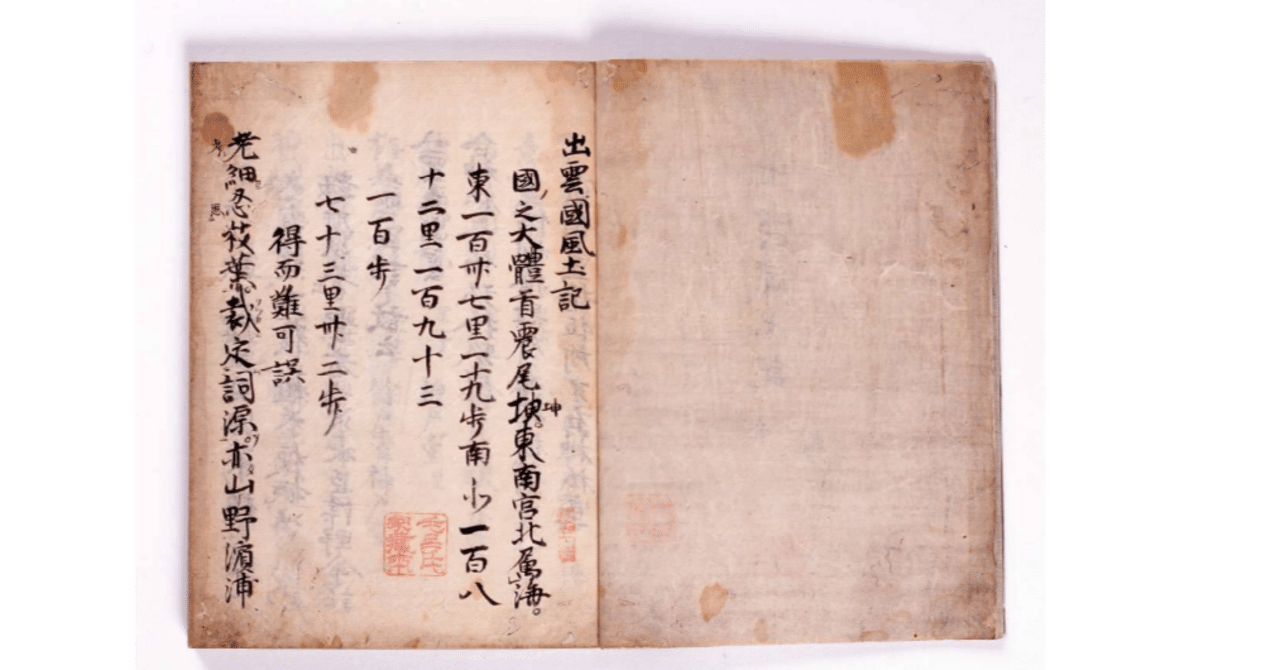 出雲國風土記
國之大體首震尾坤。東南宮北属海。
東一百卅七里一十九歩南北一百八
十二里一百九十三
一百歩
七十三里卅二歩
得而難可誤
老細思枝葉裁定詞源亦山野濱浦
坤